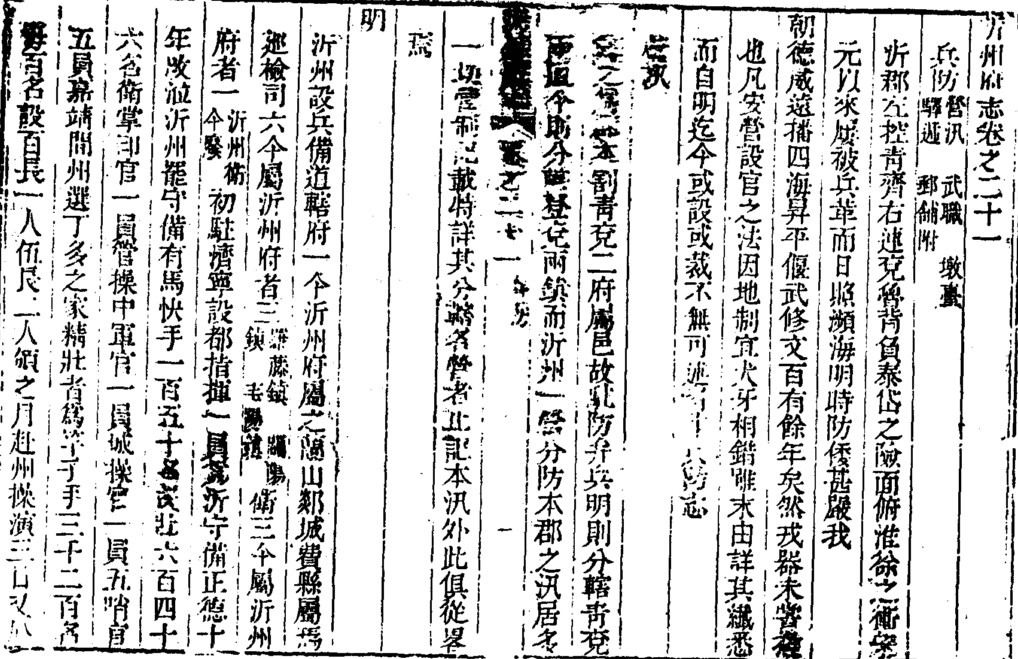 沂州府志卷之二十一
兵防 營汛 武職 墩臺
驛遞 郵舖附
沂郡左控青齊右連兗魯背負泰岱之險面俯淮徐之衝
元以來屢被兵革而日照瀕海明時防倭甚嚴我
朝德威遠播四海昇平偃武修文百有餘年矣然戎器未嘗
也凡安營設官之法因地制宜犬牙相錯雖未由詳其纖悉
而自明迄今或設或裁不無可述 兵防志
營汛
本割青兗二府屬邑故駐防弁兵明則分轄青兗
兩道今則分隸登兗兩鎮而沂州一營分防本郡之汛居多
卷之二十一
一切營制記載特詳其分轄各營者止記本汛外此俱從畧
焉
明
沂州設兵備道轄府一今沂州府屬之蘭山郯城費縣屬焉
巡檢司六今屬沂州府者三 羅藤鎮 關陽鎮 毛陽鎮 衛三今屬沂州
府者一 沂州衛今廢 初駐濟寧設都指揮一員為沂守備正德十
年改涖沂州罷守備有馬快手一百五十名 壯六百四十
六名衛掌印官一員管操中軍官一員城操官一員五哨官
五員嘉靖間州選丁多之家精壯者為竿子手三十二百名
每百名設百長一人伍長二人領之月赴州操演三日